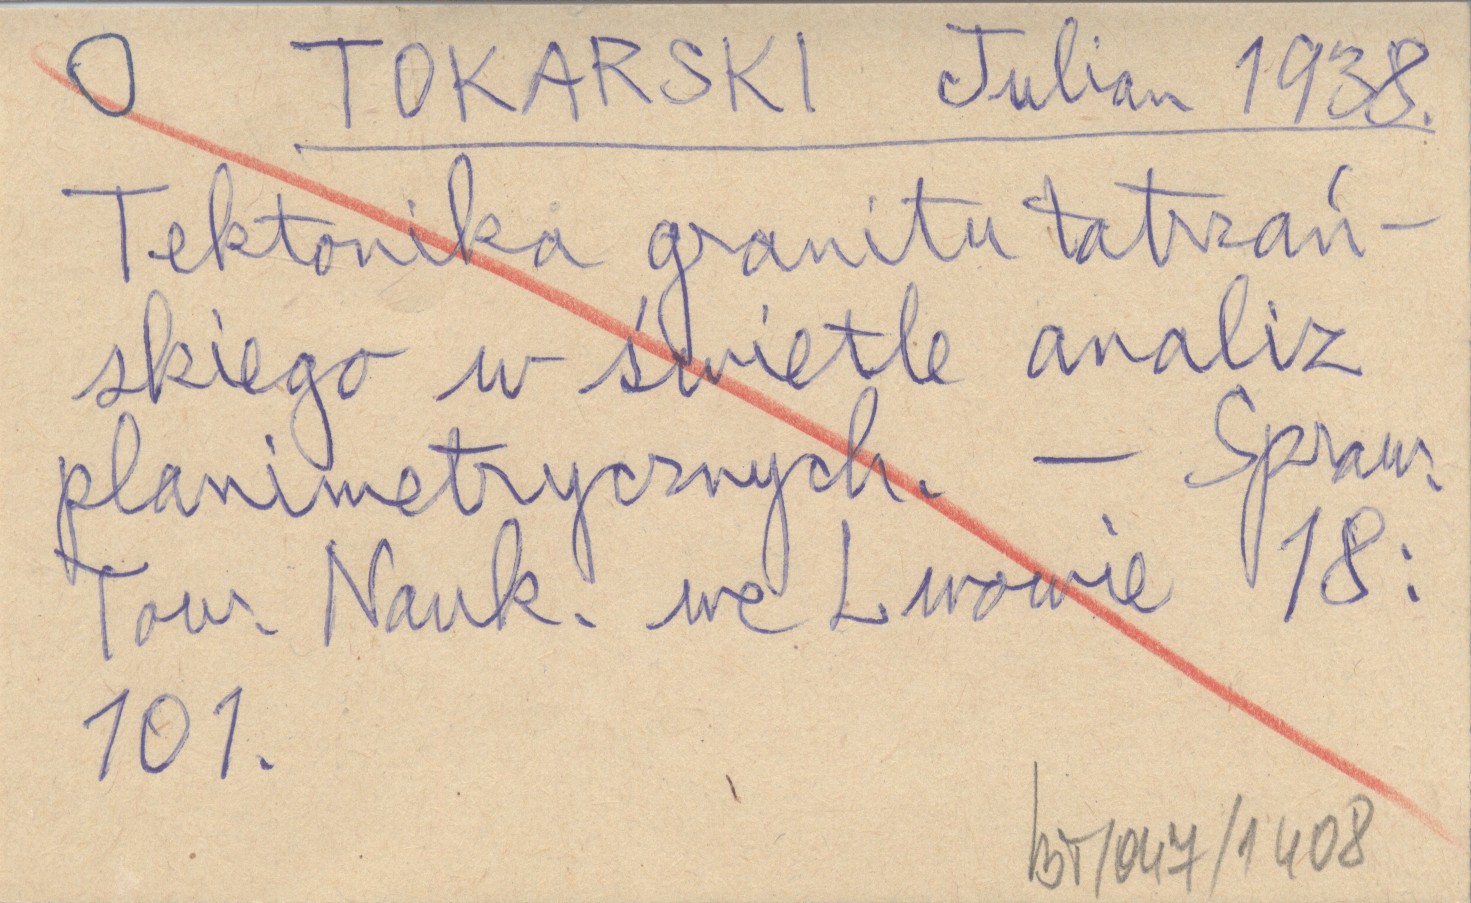 O TOKARSKI Julian 1938.
Tektonika granitu tatrzań-
skiego w świetle analiz
planimetrycznych. — Spraw.
Tow. Nauk. we Lwowie 18:
101.
BT/047/1408